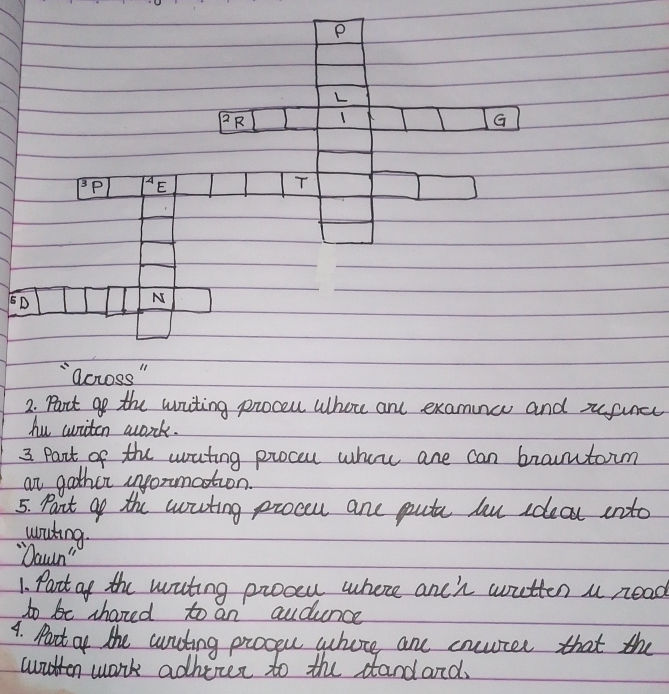 P
L
2 R I G
3 P 4 E T
5 D N
"across"
2. Part of the writing process where one examines and refines
his writen work.
3. Part of the writing process where one can brainstorm
or gather information.
5. Part of the writing process one puts his ideas into
writing.
"Down"
1. Part of the writing process where one's written is read
to be shared to an audience
4. Part of the writing process where one ensures that the
written work adheres to the standard.